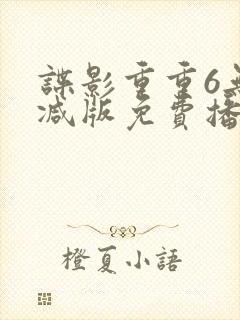 諜影重重6無
減版免費播
橙夏小語